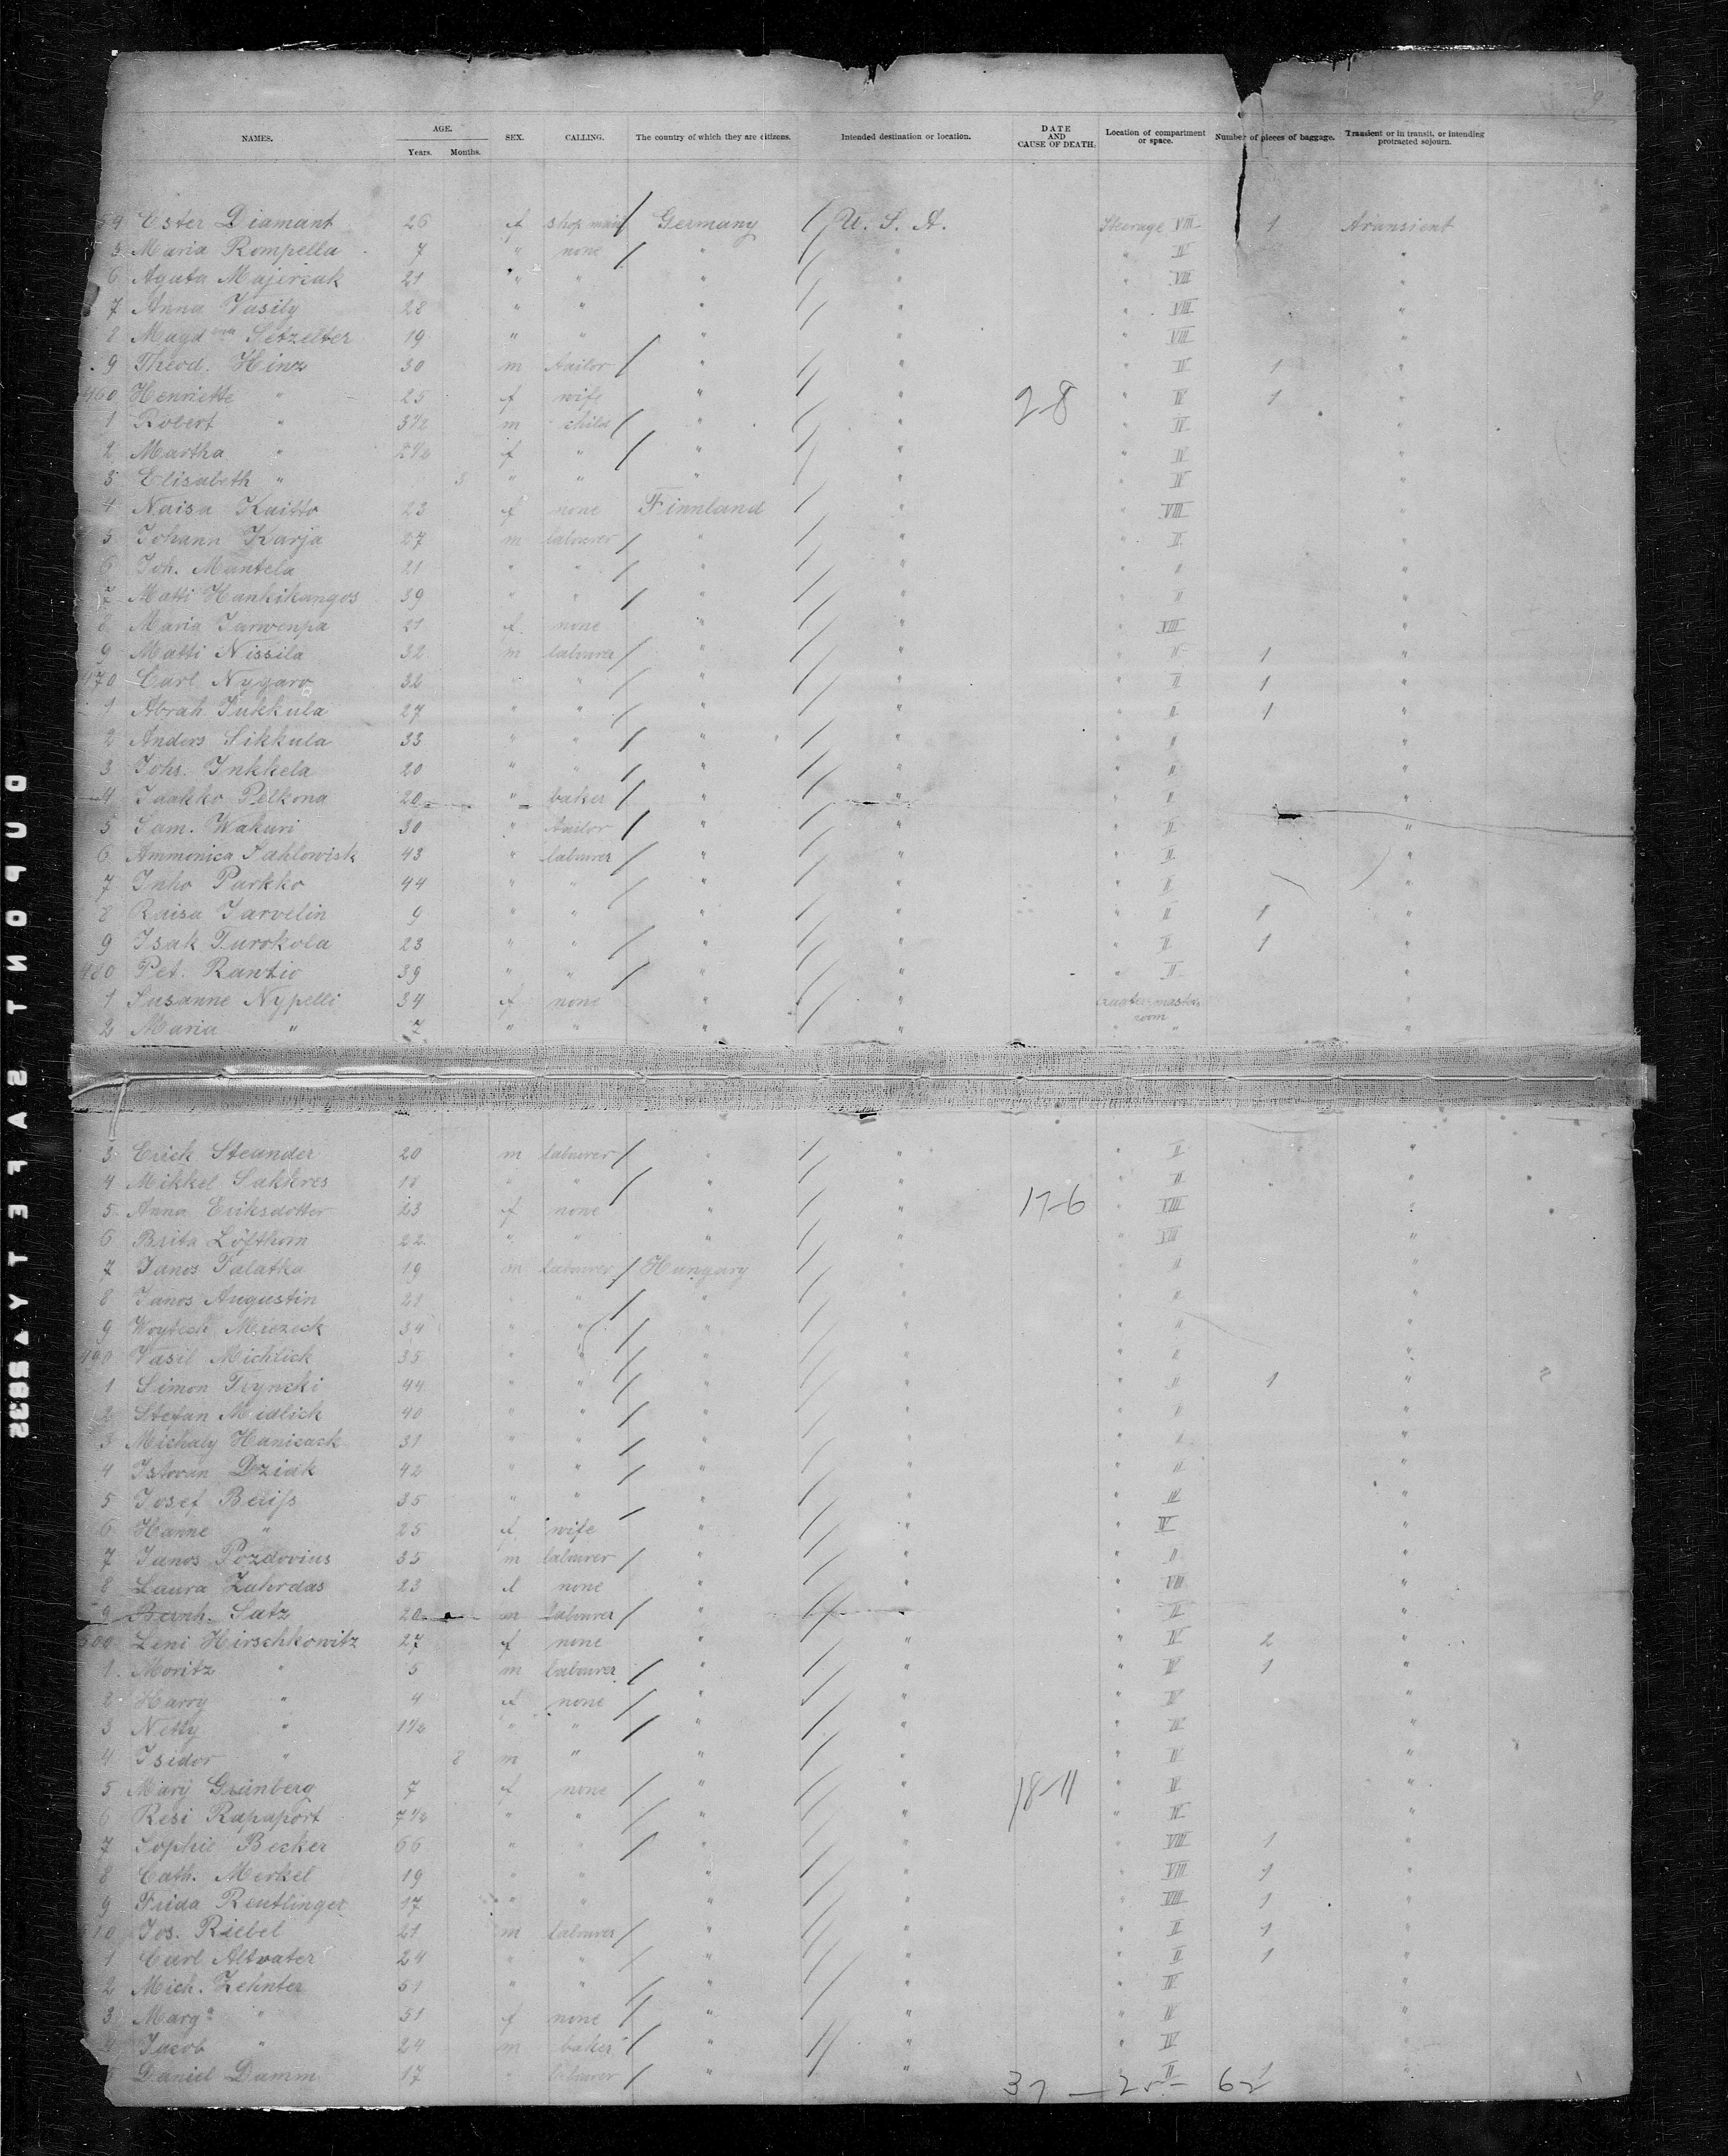 NAMES. AGE. Years. Months. SEX. CALLING. The country of which they are citizens. Intended destination or location. DATE AND CAUSE OF DEATH. Location of compartment or space. Number of pieces of baggage. Transient or in transit, or intending protracted sojourn.
Ester Diamant 26 f shop maid Germany U. S. A. Steerage VIII 1 transient
5 Maria Rompella 7 " none " " " IV "
6 Agata Majercak 21 " " " " " VIII "
7 Anna Vasily 28 " " " " " VIII "
8 Magdena Setzelter 19 " " " " " VIII "
9 Theod. Hinz 30 m tailor " " " IV 1 "
460 Henriette " 25 f wife " " 2-8 " IV 1 "
1 Robert " 3½ m child " " " IV "
2 Martha " 2½ f " " " " IV "
3 Elisabeth " 8 " " " " " IV "
4 Naisa Kuitto 23 f none Finnland " " VIII "
5 Johann Karja 27 m labourer " " " II "
6 Joh. Mantela 21 " " " " " II "
7 Matti Hankikangos 39 " " " " " II "
8 Maria Jarwenpa 21 f none " " " VIII "
9 Matti Nissila 32 m labourer " " " II 1 "
470 Carl Nygaro 32 " " " " " II 1 "
1 Abrah Pukkula 27 " " " " " II 1 "
2 Anders Sikkula 33 " " " " " II "
3 Johs. Inkkela 20 " " " " " II "
4 Jaakko Pelkona 20 " baker " " " II "
5 Sam. Wakuri 30 " tailor " " " II "
6 Ammonica Pahlowisk 43 " labourer " " " II "
7 Inho Parkko 44 " " " " " II "
8 Raisa Jarvelin 9 " " " " " II 1 "
9 Isak Turokola 23 " " " " " II 1 "
480 Pet. Rantio 39 " " " " " II "
1 Susanne Nypelli 34 f none " " quatermasters room "
2 Maria " 7 " " " " " " "
3 Erick Steander 20 m labourer " " " II "
4 Mikkel Sakkeres 18 " " " " " II "
5 Anna Eriksdotter 23 f none " " 17-6 " VIII "
6 Brita Löfthom 22 " " " " " VIII "
7 Janos Falatka 19 m labourer Hungary " " II "
8 Janos Augustin 21 " " " " " II "
9 Woytech Miezeck 34 " " " " " II "
490 Vasil Michlick 35 " " " " " II "
1 Simon Tryncki 44 " " " " " II 1 "
2 Stefan Midlick 40 " " " " " II "
3 Michaly Hanicack 31 " " " " " II "
4 Istovan Dziak 42 " " " " " II "
5 Josef Beiss 35 " " " " " IV "
6 Hanne " 25 f wife " " " IV "
7 Janos Pozdovius 35 m labourer " " " II "
8 Laura Zahrdas 23 f none " " " VIII "
9 Bernh. Satz 20 m labourer " " " II "
500 Leni Hirschkowitz 27 f none " " " IV 2 "
1 Moritz " 5 m labourer " " " IV 1 "
2 Harry " 4 f none " " " IV "
3 Netty " 1½ " " " " " IV "
4 Isidor " 8 m " " " " IV "
5 Mary Grünberg 7 f none " " 18-11 " IV "
6 Resi Rapaport 7½ " " " " " IV "
7 Sophie Becker 66 " " " " " VIII 1 "
8 Cath. Merkel 19 " " " " " VIII 1 "
9 Frida Reutlinger 17 " " " " " VIII 1 "
10 Jos. Riebel 21 m labourer " " " II 1 "
1 Carl Altvater 24 " " " " " II 1 "
2 Mich. Zehnter 51 " " " " " IV "
3 Marga " 51 f none " " " IV "
4 Jacob " 24 m baker " " " IV "
5 Daniel Damm 17 " labourer " " " II 1 "
37 — 25 — 62
DUPONT SAFETY 2532